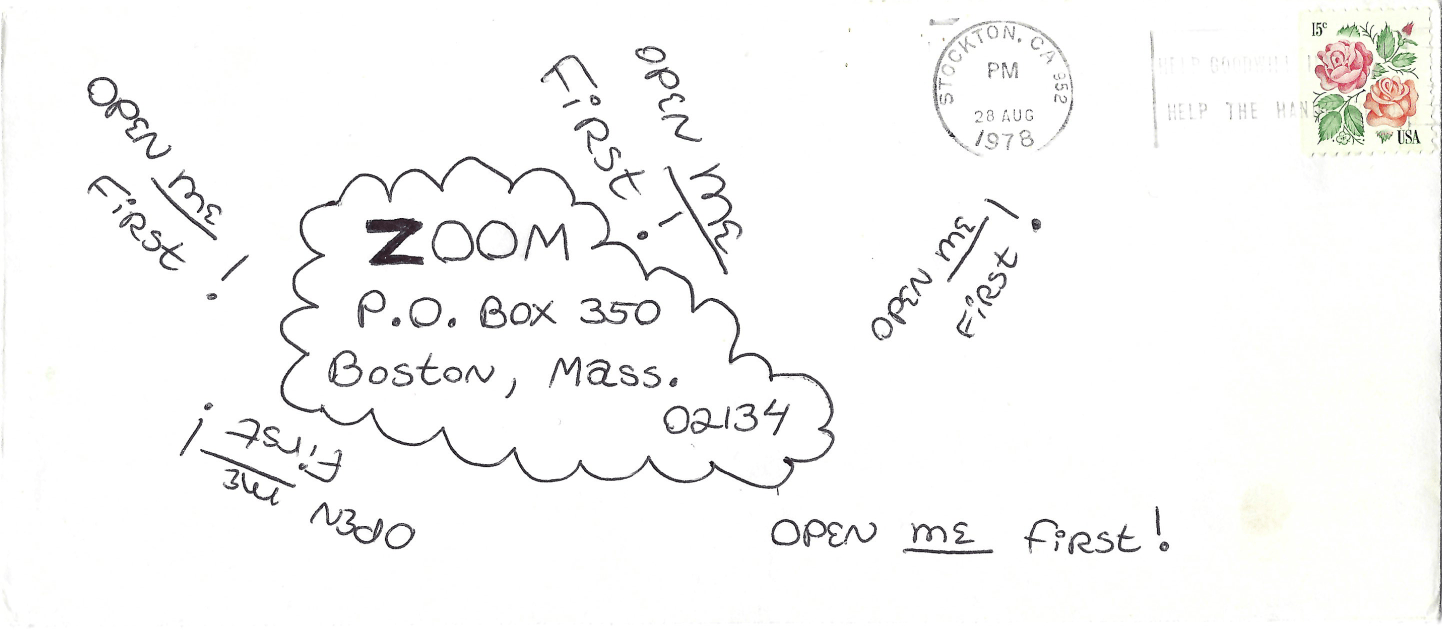 STOCKTON, CA 952
PM
28 AUG
1978
HELP GOODWILL
HELP THE HAN
15c
USA
OPEN ME
FIRST!
OPEN ME
FIRST!
ZOOM
P.O. BOX 350
BOSTON, MASS.
02134
OPEN ME
FIRST!
OPEN ME
FIRST!
OPEN ME FIRST!